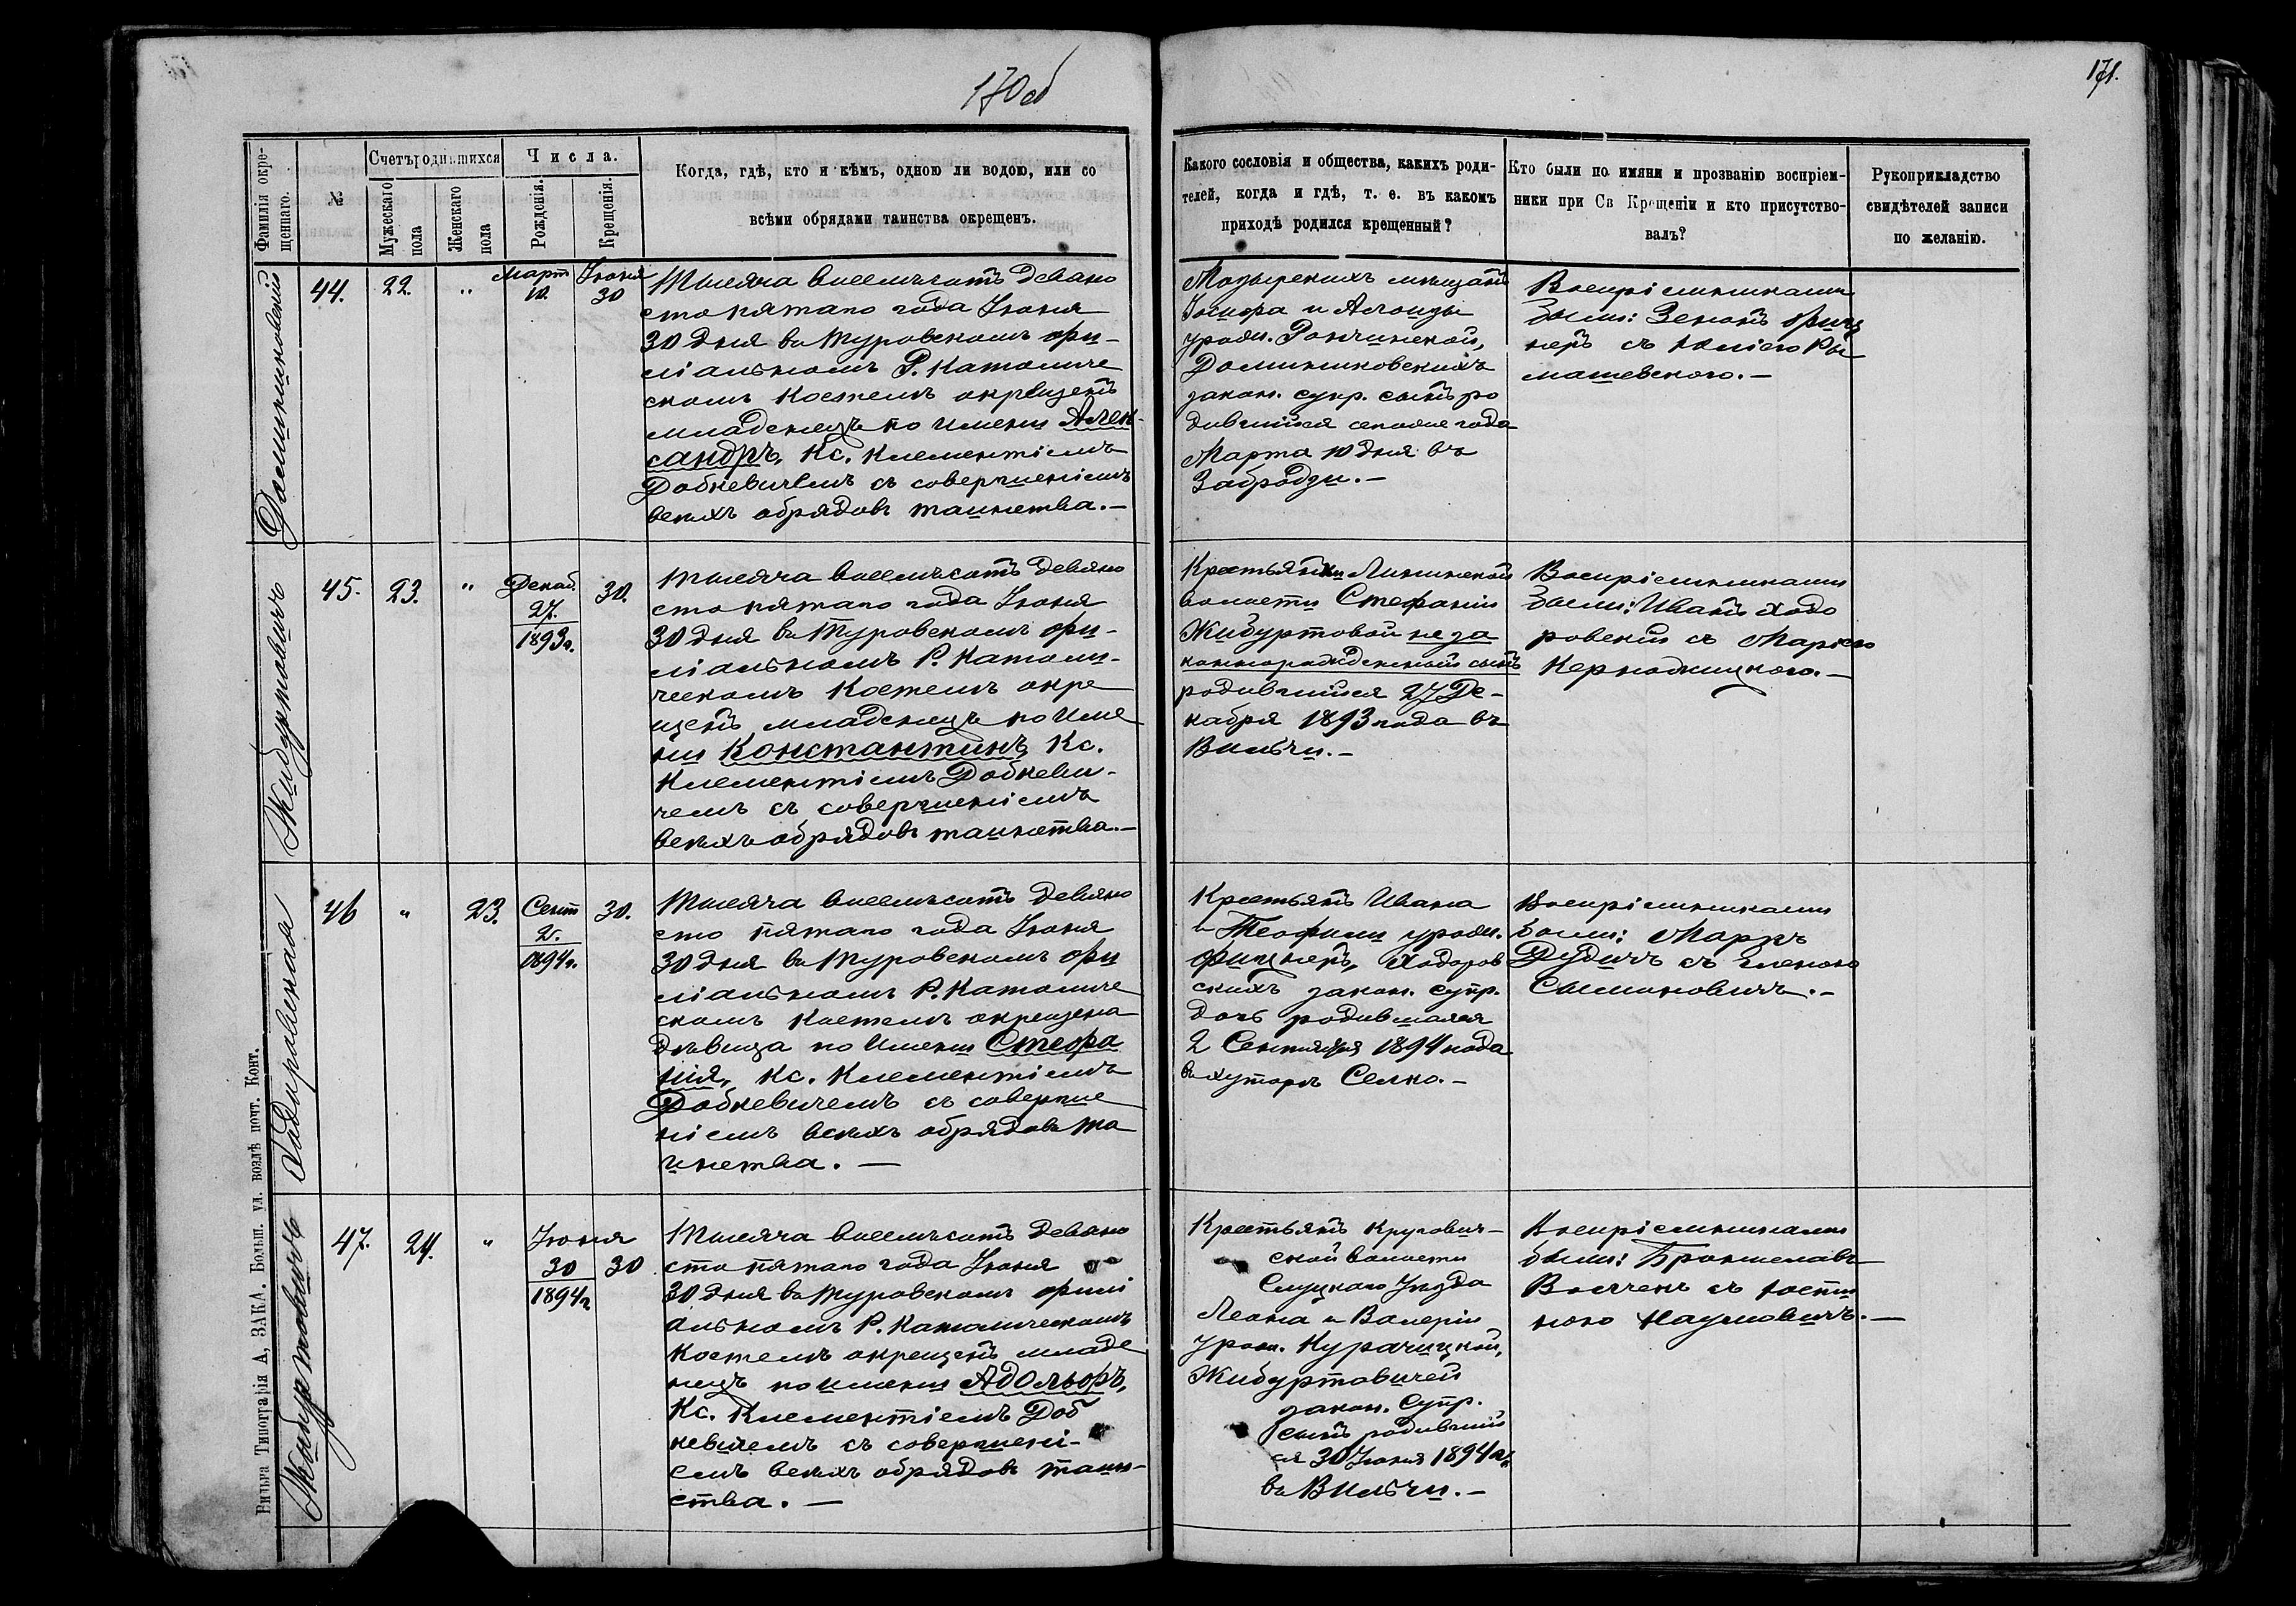 170 об
171.
Фамилія окре-
щеннаго.
№
Счетъ родившихся
Мужескаго
пола
Женскаго
пола
Числа.
Рожденія.
Крещенія.
Когда, гдѣ, кто и кѣмъ, одною ли водою, или со
всѣми обрядами таинства окрещенъ.
Какого сословія и общества, какихъ роди-
телей, когда и гдѣ, т. е. въ какомъ
приходѣ родился крещенный?
Кто были по имяни и прозванію воспріем-
ники при Св Крещеніи и кто присутство-
валъ?
Рукоприкладство
свидѣтелей записи
по желанію.
Доминиковскій
44.
22.
"
Март
10.
Іюня
30
Тысяча восемьсотъ девяно
сто пятаго года Іюня
30 дня въ Туровскомъ фи-
ліальномъ Р. Католиче
скомъ Костелѣ окрещенъ
младенецъ по имени Алек-
сандръ, Кс. Клементіемъ
Добкевичемъ съ совершеніемъ
всѣхъ обрядовъ таинства.—
Мозырскихъ мещанъ
Іосифа и Алоизы
урожд.
Доминиковскихъ
закон. супр. сынъ ро
дившійся сего же года
Марта 10 дня въ
Забродзи.—
Воспріемниками
были: Зенонъ Фиц
неръ съ Юліею
Жибуртовичъ
45.
23.
"
Декаб.
27.
1893г.
30.
Тысяча восемьсотъ девяно
сто пятаго года Іюня
30 дня въ Туровскомъ фи-
ліальномъ Р. Католи-
ческомъ Костелѣ окре
щенъ младенецъ по име
ни Константинъ, Кс.
Клементіемъ Добкеви-
чемъ съ совершеніемъ
всѣхъ обрядовъ таинства.—
Крестьянки Ленинской
волости Стефаніи
Жибуртовой неза
коннорожденный сынъ
родившійся 27 Де-
кабря 1893 года въ
Вильчи.—
Воспріемниками
были: Иванъ Ходо
ровскій съ Маріею
Ходоровская
46
"
23.
Сент
2.
1894г.
30.
Тысяча восемьсотъ девяно
сто пятаго года Іюня
30 дня въ Туровскомъ фи
ліальномъ Р. Католиче
скомъ Костелѣ окрещена
дѣвица по имени Стефа
нія, Кс. Клементіемъ
Добкевичемъ съ соверше
ніемъ всѣхъ обрядовъ та
инства.—
Крестьянъ Ивана
и Теофили урожд.
Фицнеръ, Ходоров
скихъ закон. супр.
дочь родившаяся
2 Сентября 1894 года
въ хуторѣ Селко.—
Воспріемниками
были: Маркъ
Дудичъ съ Еленою
Симоновичъ.—
Жибуртовичъ
47.
24.
"
Іюня
30
1894г
30
Тысяча восемьсотъ девяно
сто пятаго года Іюня
30 дня въ Туровскомъ фили
альномъ Р. Католическомъ
Костелѣ окрещенъ младе
нецъ по имени Адольфъ,
Кс. Клементіемъ Доб
кевичемъ съ совершені-
емъ всѣхъ обрядовъ таин-
ства.—
Крестьянъ Кругович-
ской волости
Слуцкаго Уѣзда
Леона и Валеріи
урож. Курачицкой,
Жибуртовичей
закон. супр.
сынъ родившій
ся 30 Іюня 1894 г.
въ Вильчи.—
Воспріемниками
были: Брониславъ
Волчекъ съ Юсти
ною Наумовичъ.—
Вильна Типографія А, ЗАКА. Больш. ул. возлѣ почт. Конт.